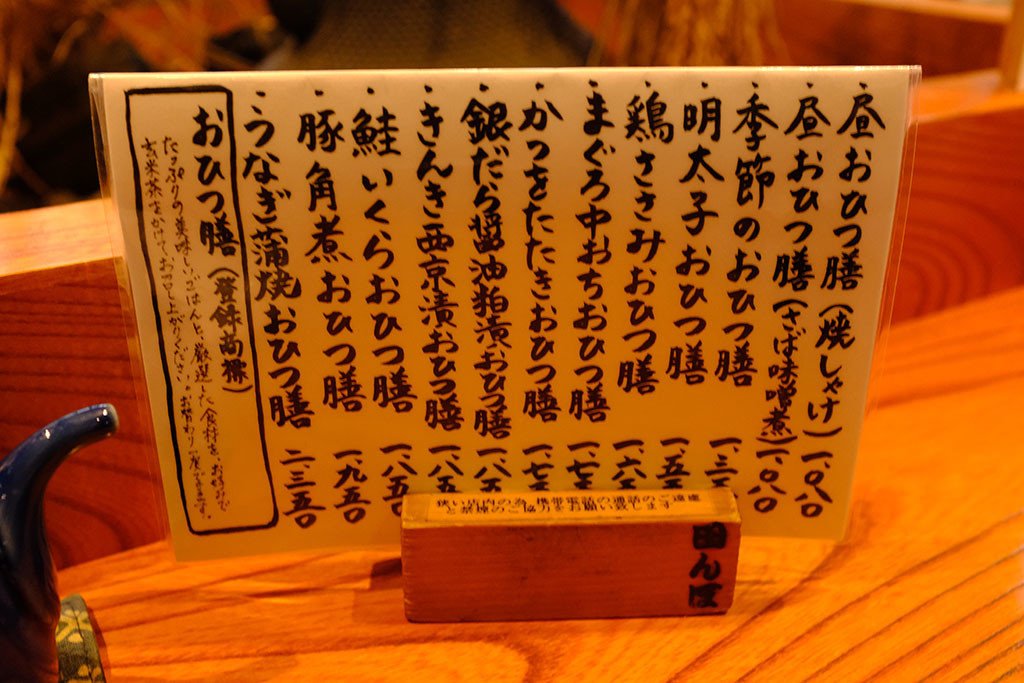 ・昼おひつ膳(焼しゃけ)一、〇八〇
・昼おひつ膳(さば味噌煮)一、〇八〇
・季節のおひつ膳 一、三
・明太子おひつ膳 一、五
・鶏ささみおひつ膳 一、六
・まぐろ中おちおひつ膳 一、七
・かつをたたきおひつ膳 一、七
・銀だら醤油粕漬おひつ膳 一、八
・きんき西京漬おひつ膳 一、八五
・鮭いくらおひつ膳 一、八五〇
・豚角煮おひつ膳 一、九五〇
・うなぎ蒲焼おひつ膳 二、三五〇
おひつ膳(登録商標)
たっぷりの美味しいごはんと、厳選した食材を、お好みで
玄米茶をかけてお召し上がりください。お替わり一度できます。
狭い店内の為、携帯電話の通話のご遠慮
と禁煙のご協力をお願い致します
田んぼ